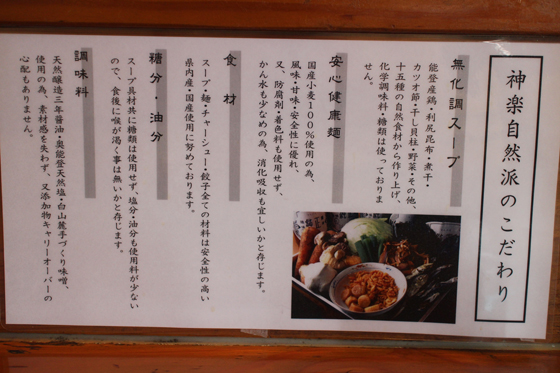 神楽自然派のこだわり
無化調スープ
能登産鶏・利尻昆布・煮干・
カツオ節・干し貝柱・野菜・その他、
十五種の自然食材から作り上げ、
化学調味料・糖類は使っておりま
せん。
安心健康麺
国産小麦100%使用の為、
風味・甘味・安全性に優れ、
又、防腐剤・着色料も使用せず、
かん水も少なめの為、消化吸収も宜しいかと存じます。
食材
スープ・麺・チャーシュー・餃子全ての材料は安全性の高い
県内産・国産使用に努めております。
糖分・油分
スープ具材共に糖類は使用せず、塩分・油分も使用料が少ない
ので、食後に喉が渇く事は無いかと存じます。
調味料
天然醸造三年醤油・奥能登天然塩・白山麓手づくり味噌、
使用の為、素材感を失わず、又添加物キャリーオーバーの
心配もありません。